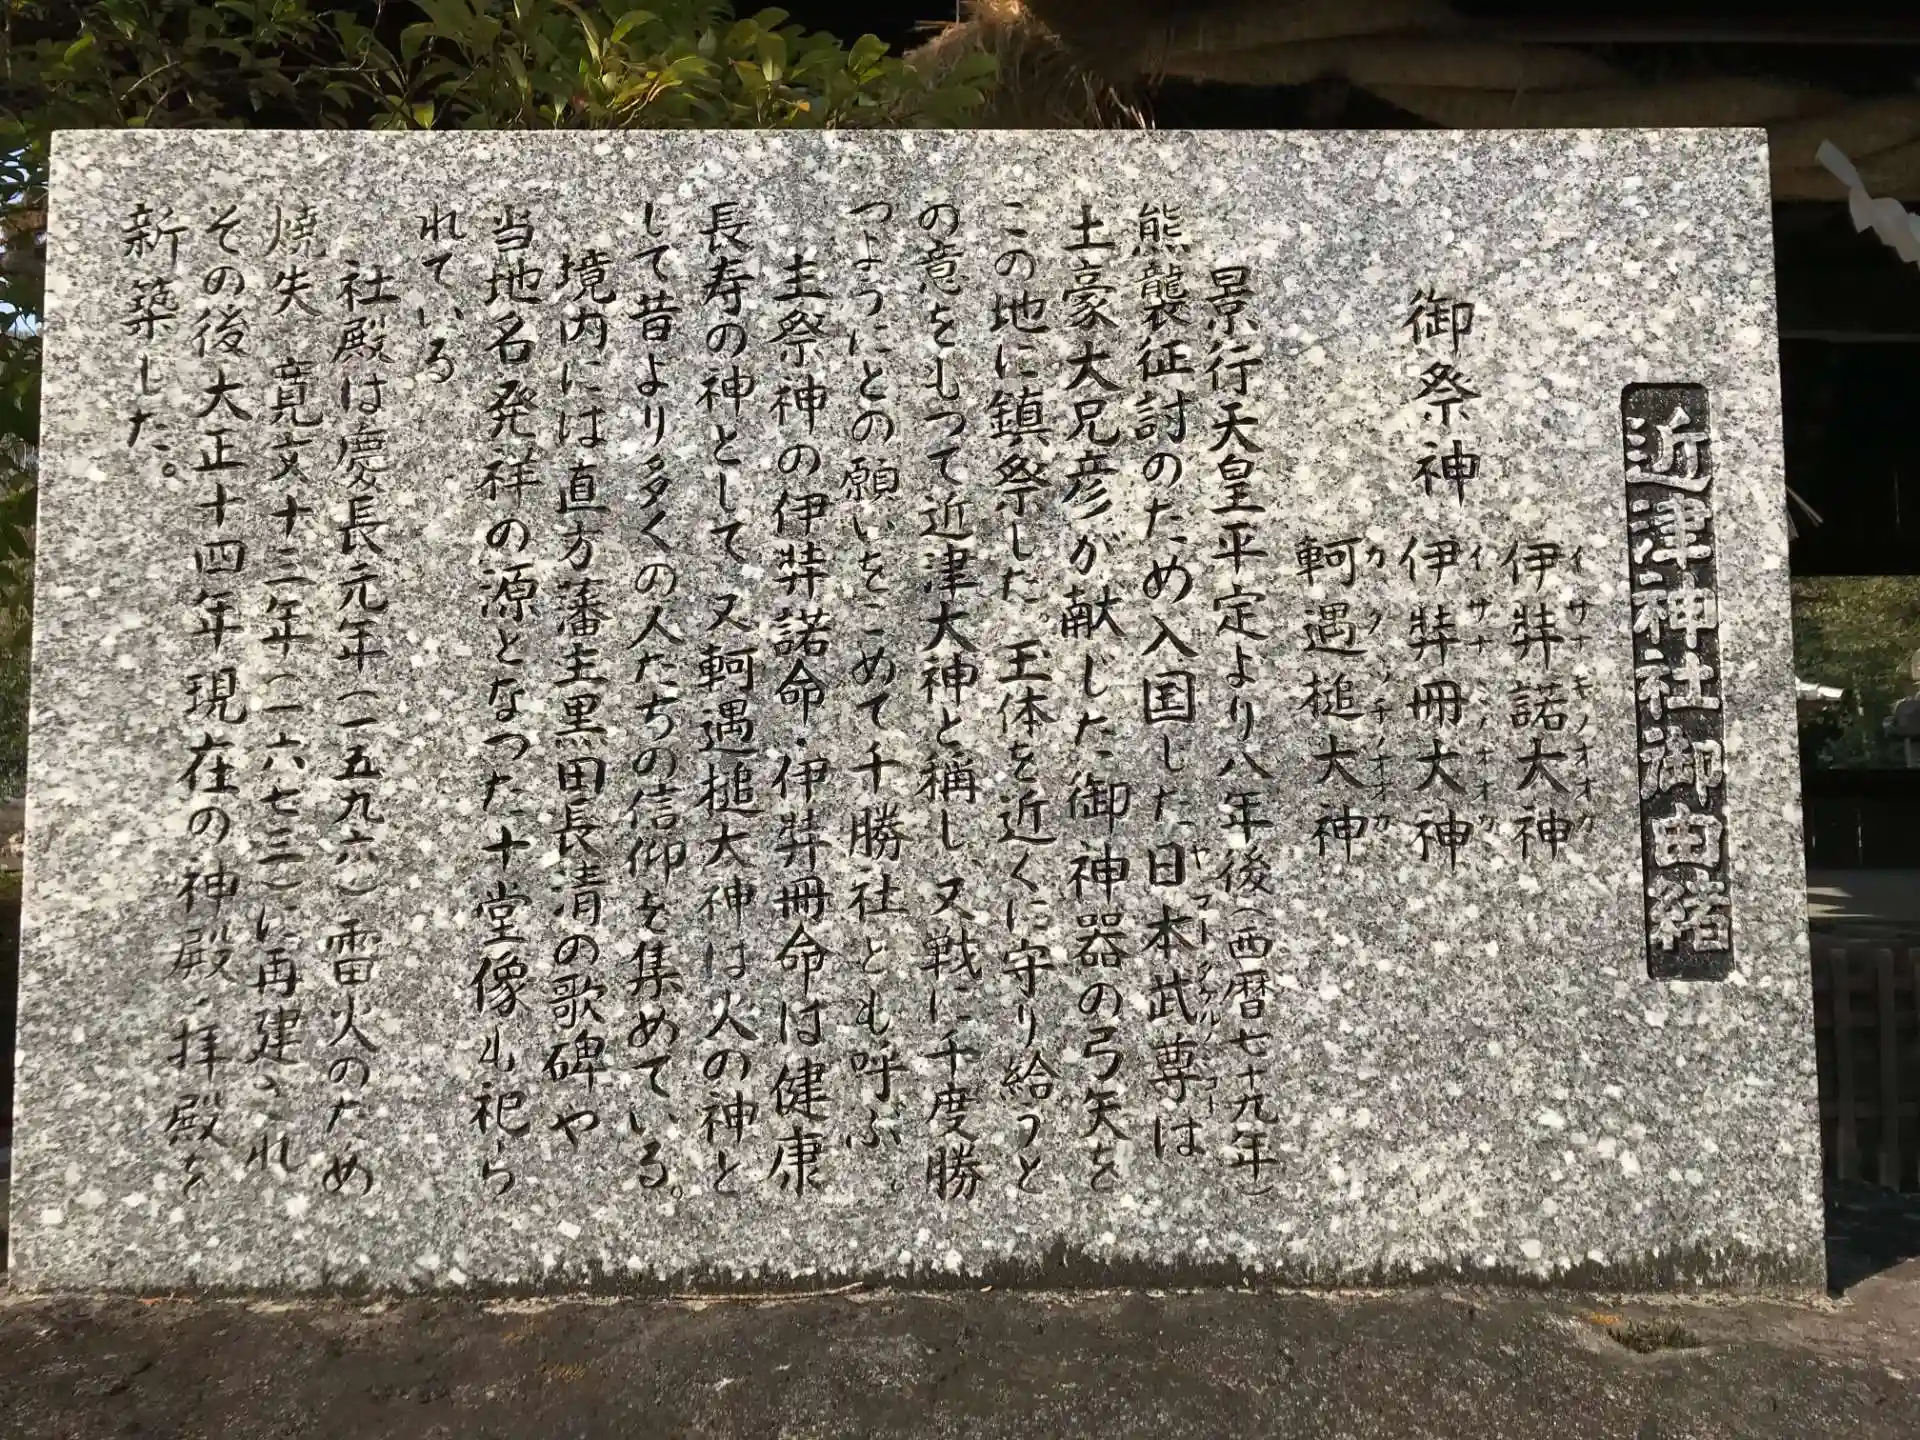 近津神社御由緒
御祭神
伊弉諾大神
イサナキノオオカ
伊弉冊大神
イサナミノオオカ
軻遇槌大神
カクツチノオオカ
景行天皇平定より八年後(西暦七十九年)
熊襲征討のため入国した日本武尊は
ヤマートタケルノコー
土豪大兄彦が献じた御神器の弓矢を
この地に鎮祭した。玉体を近くに守り給うと
の意をもつて近津大神と称し又戦に千度勝
つようにとの願いをこめて千勝社とも呼ぶ。
主祭神の伊弉諾命・伊弉冊命は健康
長寿の神として又軻遇槌大神は火の神と
して昔より多くの人たちの信仰を集めている。
境内には直方藩主黒田長清の歌碑や
当地名発祥の源となつた十堂像も祀ら
れている
社殿は慶長元年(一五九六)雷火のため
焼失 寛文十三年(一六七三)に再建され
その後大正十四年現在の神殿・拝殿を
新築した。